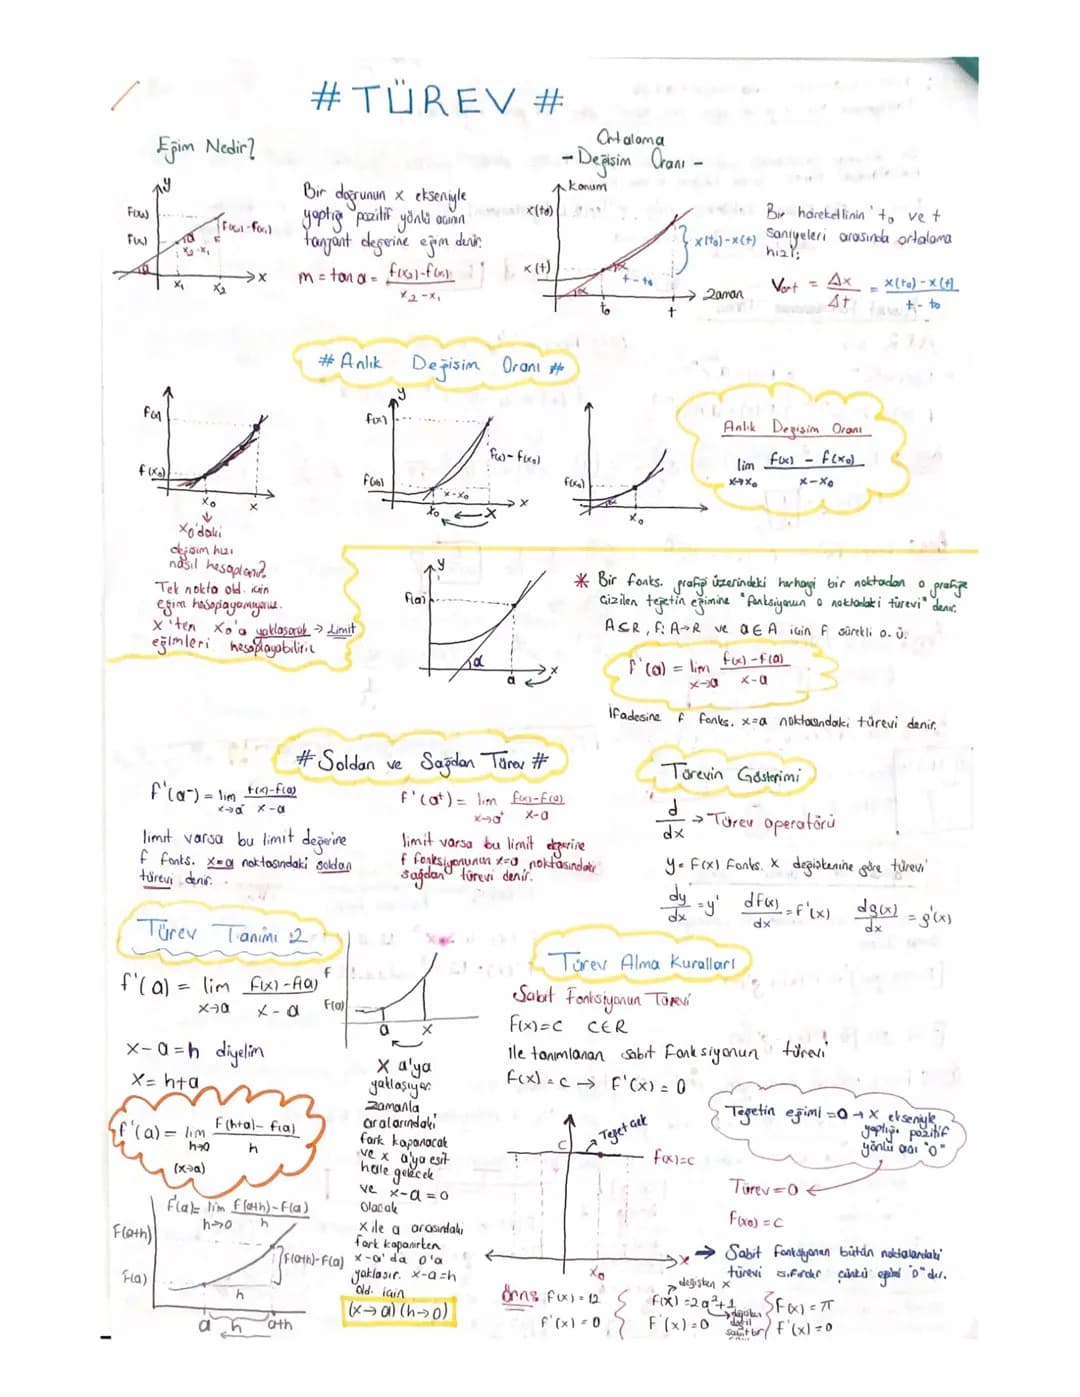 # TÜREV #
Eğim Nedir?
y
F(x₂)
F(x₁)
F(x₂)-F(x₁)
x₂-x₁
x₁
x₂
x
Bir doğrunun x ekseniyle
yaptığı pozitif yönlü açının
tanjant değerine eğim denir.
m = tan α = f(x₂)-f(x₁)
x₂-x₁
Ortalama
- Değişim Oranı -
konum
x(t₀)
x(t)
x(t₀)-x(t)
t-t₀
t₀
t
Zaman
Bir hareketlinin t₀ ve t
saniyeleri arasında ortalama
hızı;
Vort = Δx / Δt = x(t₀)-x(t) / t-t₀
# Anlık Değişim Oranı #
f(x)
f(x₀)
x₀
x
x₀'daki
değişim hızı
nasıl hesaplanır?
Tek nokta old. için
eğim hesaplayamıyoruz.
x'ten x₀'a yaklaşarak → Limit
eğimleri hesaplayabiliriz
y
f(x)
f(x₀)
f(x)-f(x₀)
x-x₀
x₀
x
x
f(x₀)
x₀
Anlık Değişim Oranı
lim x→x₀ f(x) - f(x₀) / x-x₀
y
f(a)
α
a
x
* Bir fonks. grafiği üzerindeki herhangi bir noktadan o grafiğe
Çizilen teğetin eğimine "fonksiyonun o noktadaki türevi" denir.
A⊆R, f: A→R ve a∈A için f sürekli o. ü.
f'(a) = lim x→a f(x)-f(a) / x-a
İfadesine f fonks. x=a noktasındaki türevi denir.
# Soldan ve Sağdan Türev #
f'(a⁻) = lim x→a⁻ f(x)-f(a) / x-a
limit varsa bu limit değerine
f fonks. x=a noktasındaki soldan
türevi denir.
f'(a⁺) = lim x→a⁺ f(x)-f(a) / x-a
limit varsa bu limit değerine
f fonksiyonunun x=a noktasındaki
sağdan türevi denir.
Türevin Gösterimi
d/dx → Türev operatörü
y = F(x) Fonks. x değişkenine göre türevi
dy/dx = y' dF(x)/dx = F'(x) dg(x)/dx = g'(x)
Türev Tanımı 2
f'(a) = lim x→a F(x)-F(a) / x-a
F
F(a)
a
x
x-a=h diyelim
x= h+a
f'(a) = lim h→0 F(h+a)- F(a) / h
(x→a)
f'(a)= lim h→0 F(a+h)-F(a) / h
F(a+h)
F(a)
F(a+h)-F(a)
h
a
h
a+h
x a'ya
yaklaşıyor
zamanla
aralarındaki
fark kapanacak
ve x a'ya eşit
hale gelecek
ve x-a=0
olacak
x ile a arasındaki
fark kapanırken
x-a'da 0'a
yaklaşır. x-a=h
old. için
(x→a) (h→0)
Türev Alma Kuralları
Sabit Fonksiyonun Türevi
F(x)=c c∈R
ile tanımlanan sabit fonksiyonun türevi
F(x)=c → F'(x) = 0
c
Teğet
F(x)=c
x₀
x
Teğetin eğimi =0 → x ekseniyle
yaptığı pozitif
yönlü açı "0"
Türev=0
F(x₀) = c
→ Sabit fonksiyonun bütün noktalardaki
türevi sıfırdır çünkü eğimi "0" dır.
Örn: F(x) = 12
F'(x) = 0
değişken x
F(x) =2a²+1
değişken
değil
sabit
F'(x) =0
F(x) = π
F'(x) =0